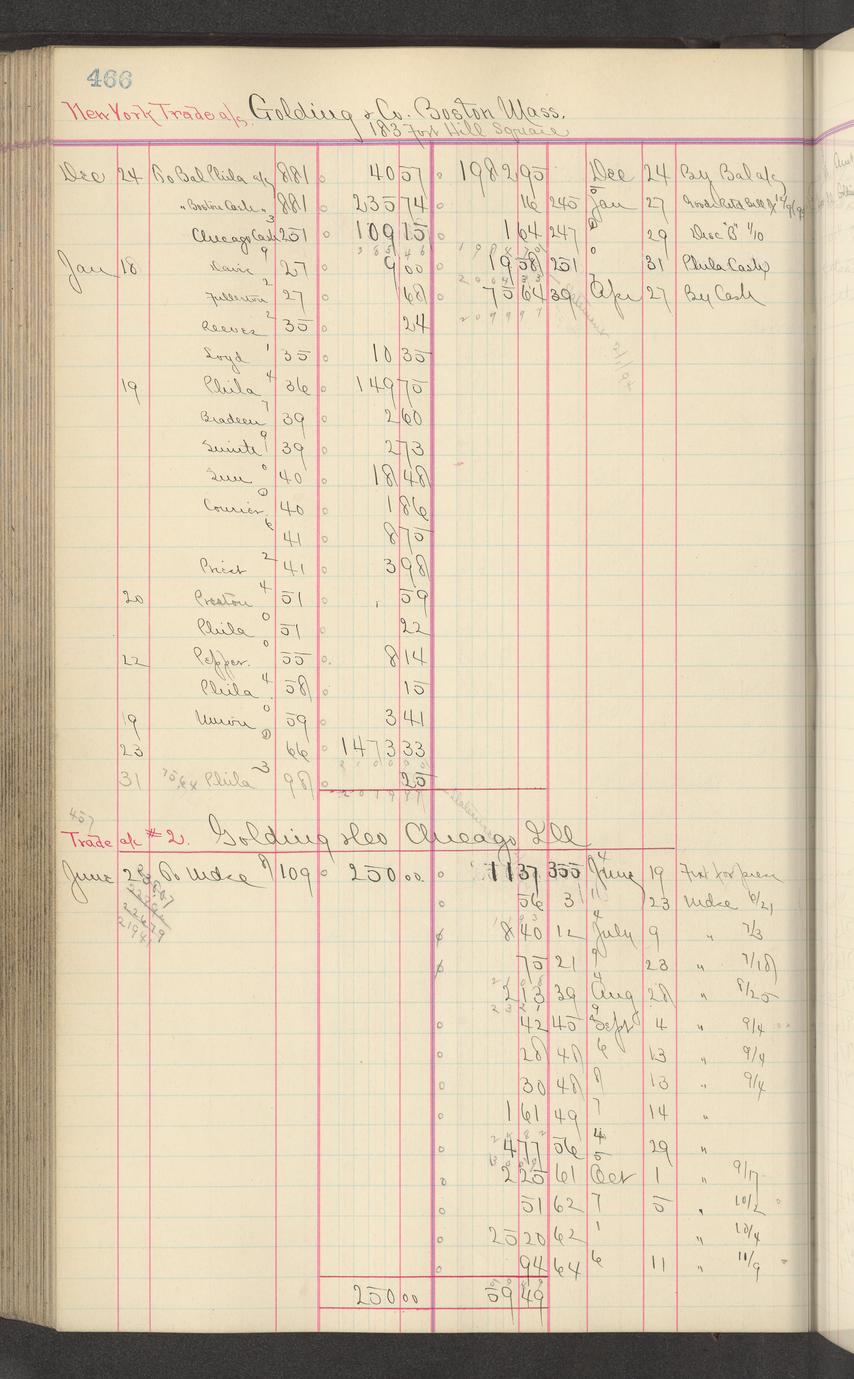 466
New York Trade a/s. Golding & Co. Boston Mass.
183 Fort Hill Square
Dec 24 To Bal Phila a/c 881 40 57 1982 95 Dec 24 By Bal a/c
" Boston Cash " 881 235 74 16 245 Jan 27
Chicago Cash 251 109 15 1 64 247 29 Disc "B" 1/10
Jan 18 27 9 00 19 58 251 31 Phila Cash
Fullerton 27 68 75 64 39 Apr 27 By Cash
Reeves 35 24
Loyd 35 10 35
19 Phila 36 149 75
Bradeen 39 2 60
39 2 73
Sun 40 18 48
Courier 40 1 86
41 8 75
Priest 41 3 98
20 Preston 51 59
Phila 51 22
22 Pepper. 55 8 14
Phila 58 15
19 Union 59 3 41
23 66 1473 33
31 Phila 98 25
Trade a/c #2. Golding & Co Chicago Ill
June 23 To Mdse 109 250 00 11 37 355 June 19
56 3 23 Mdse 6/21
8 40 12 July 9 " 7/3
75 21 23 " 7/18
2 13 39 Aug 28 " 8/25
42 45 Sept 4 " 9/4
28 48 13 " 9/4
30 48 13 " 9/4
1 61 49 14 "
4 77 56 29 "
2 25 61 Oct 1 " 9/17
51 62 5 " 10/2
25 20 62 " 10/4
94 64 11 " 11/9
250 00 59 49